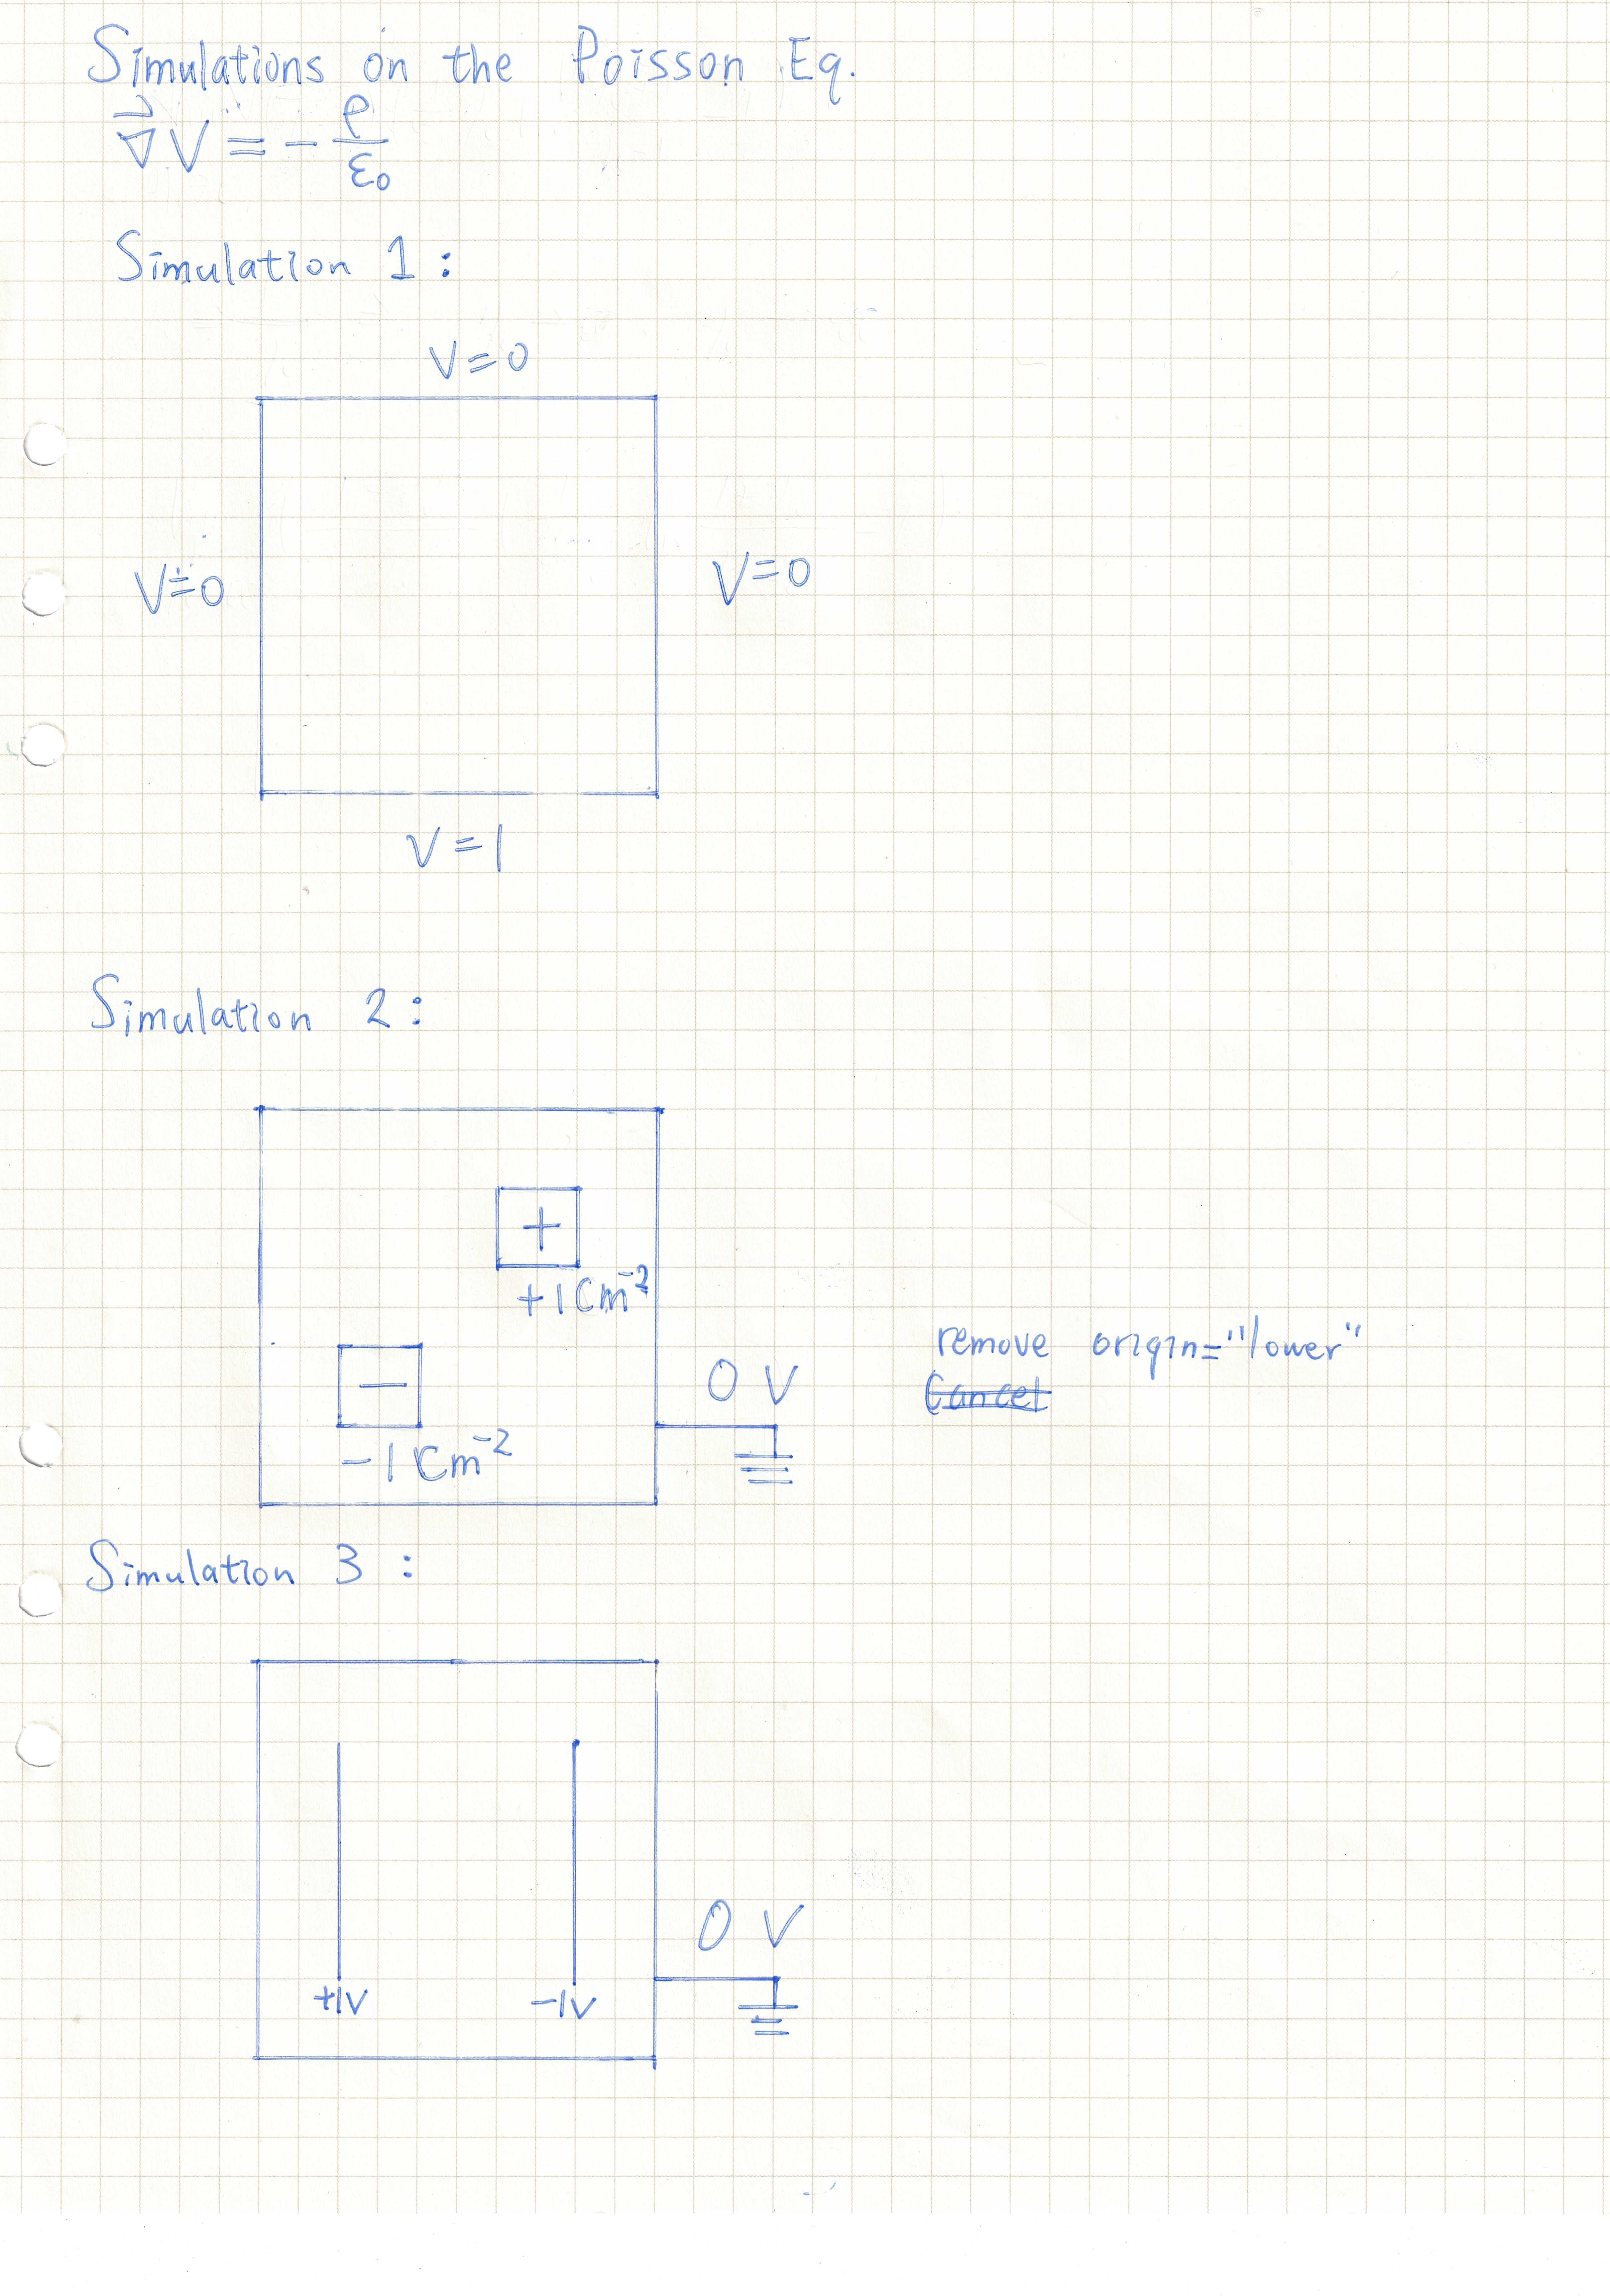 Simulations on the Poisson Eq.
∇⃗V = - ρ/ε₀
Simulation 1 :
V=0
V=0
V=0
V=1
Simulation 2 :
+
+1 Cm⁻²
remove origin="lower"
0 V
Cancel
−
-1 Cm⁻²
Simulation 3 :
0 V
+1V
-1V